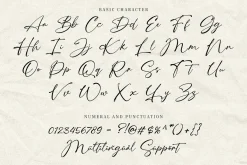 BASIC CHARACTER
Aa Bb Cc Dd Ee Ff Gg
Hh Ii Jj Kk Ll Mm Nn
Oo Pp Qq Rr Ss Tt Uu
Vv Ww Xx Yy Zz
NUMERAL AND PUNCTUATION
0123456789 - ?!@#$%^*()+[]
Multilingual Support